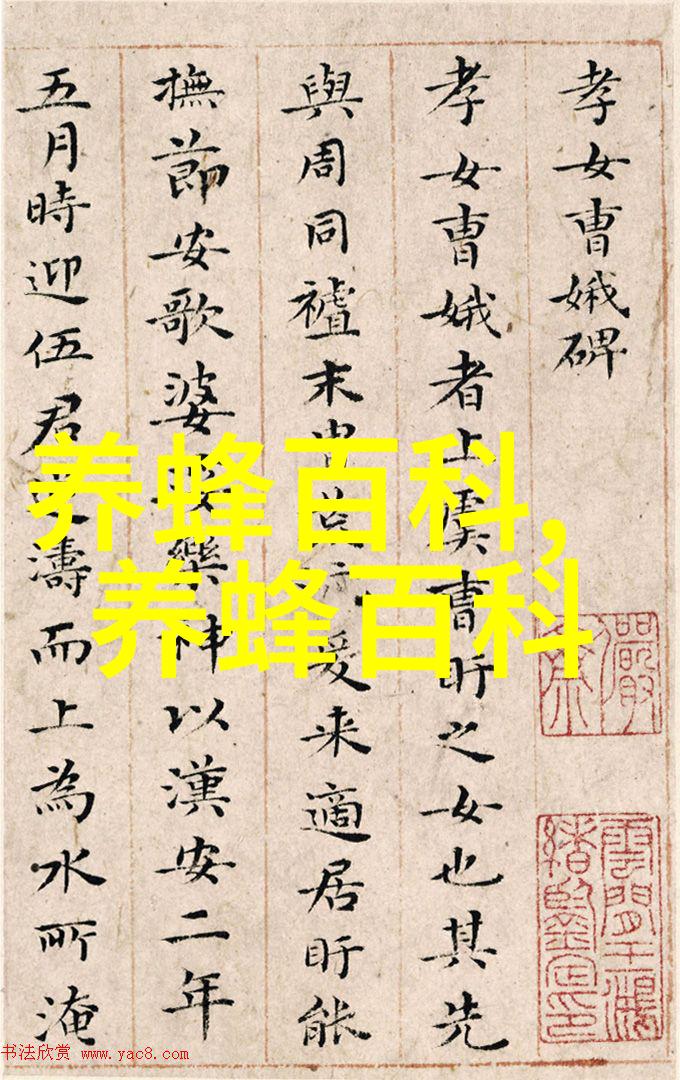 孝女曹娥碑
孝女曹娥者上虞曹盱之女也其先
與周同末爰来適居盱能
撫節安歌婆娑樂神以漢安二年
五月時迎伍君濤而上為水所淹
养蜂百科,
养蜂百科
书法欣赏 www.yac8.com